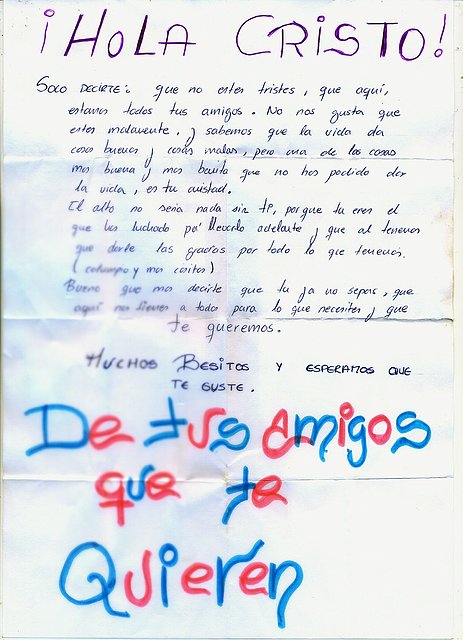 ¡HOLA CRISTO!
SOLO DECIRTE: que no estes tristes, que aquí,
estamos todos tus amigos. No nos gusta que
estes malamente, y sabemos que la vida da
cosas buenas y cosas malas, pero una de las cosas
mas buena y mas bonita que no has podido dar
la vida, es tu amistad.
El alto no seria nada sin tí, porque tu eres el
que has luchado pa' llevarlo adelante y que al tenemos
que darle las gracias por todo lo que tenemos.
(columpio y mas cositas)
Bueno que mas decirte que tu ya no sepas, que
aquí nos tienes a todos para lo que necesites y que
te queremos.
MUCHOS BESITOS Y ESPERAMOS QUE
TE GUSTE.
De tus amigos
que te
Quieren